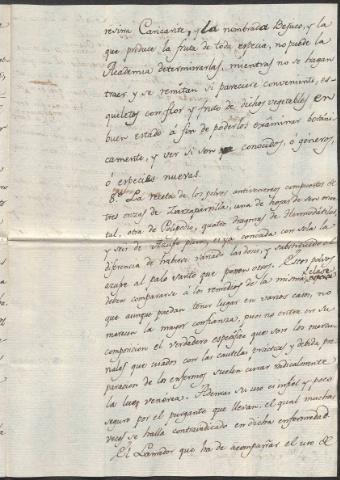 resina Cancante, y la nombrada Besuco, y la
que produce la fruta de toda especia, no puede la
Academia determinarlas, mientras no se hagan
traer, y se remitan si pareciere conveniente, es-
queletos con flor y fruto de dichos vegetables en
buen estado á fin de poderlos exâminar botáni-
camente, y ver si son conocidos, ó generos,
ó especies nuevas.
8º La receta de los polvos antivenereos compuestos de
tres onzas de Zarzaparrilla, una de hojas de Sen orien-
tal, otra de Polipodio, quatro dragmas de Hermodátiles
y seis de es ya conocida con sola la
diferencia de haberse variado las dosis, y substituido el
al palo santo que ponen otros. Estos polvos
deben compararse á los remedios de la misma clase
que aunque puedan tener lugar en varios casos, no
merecen la mayor confianza, pues no entra en su
composicion el verdadero especifico que son los mercu-
riales que usados con las cautelas precisas y debida pre-
paracion de los enfermos suelen curar radicalmente
la lue venerea. Ademas su uso es infiel y poco
seguro por el purgante que llevan, el qual muchas
veces se halla contraindicado en dicha enfermedad.
El Parador que ha de acompañar el uso de